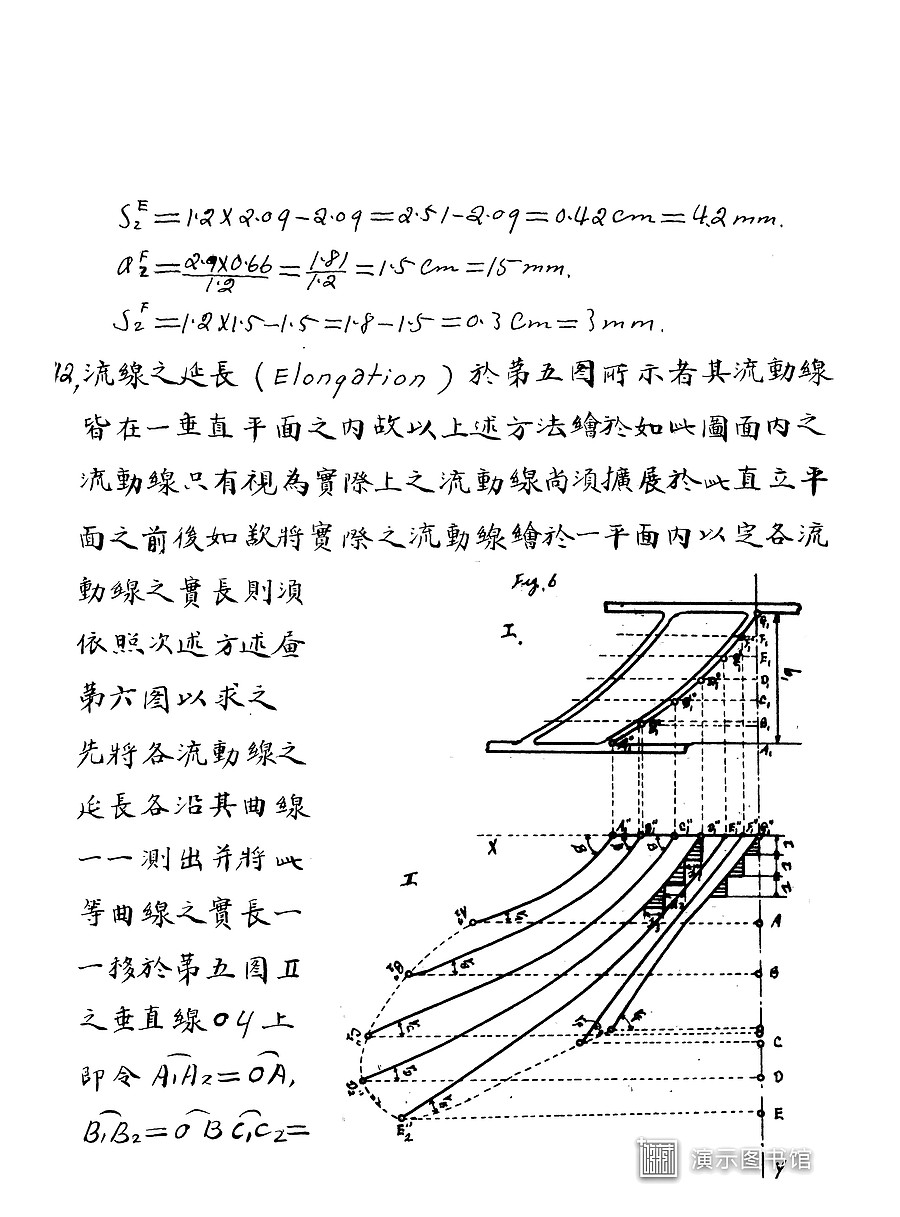 S₂ᴱ=1.2×2.09-2.09=2.51-2.09=0.42cm=4.2mm.
a₂ꟳ=2.9×0.66/1.2=1.81/1.2=1.5cm=15mm.
S₂ꟳ=1.2×1.5-1.5=1.8-1.5=0.3cm=3mm.
12,流線之延長(Elongation)於第五图所示者其流動線
皆在一垂直平面之内故以上述方法繪於如此圖面内之
流動線只有視為實際上之流動線尚須擴展於此直立平
面之前後如欵將實際之流動線繪於一平面内以定各流
動線之實長則須
依照次述方述
第六图以求之
先將各流動線之
延長各沿其曲線
一一測出并將此
等曲線之實長一
一移於第五图Ⅱ
之垂直線oy上
即令A₁A₂=OA,
B₁B₂=OB C₁C₂=
Fig.6
I.
E₁
D₁
C₁
B₁
A₁
X
A₁" B₁" C₁" D₁" E₁" F₁"
II
A
B
C
D
E
E₂"
y
演示图书馆